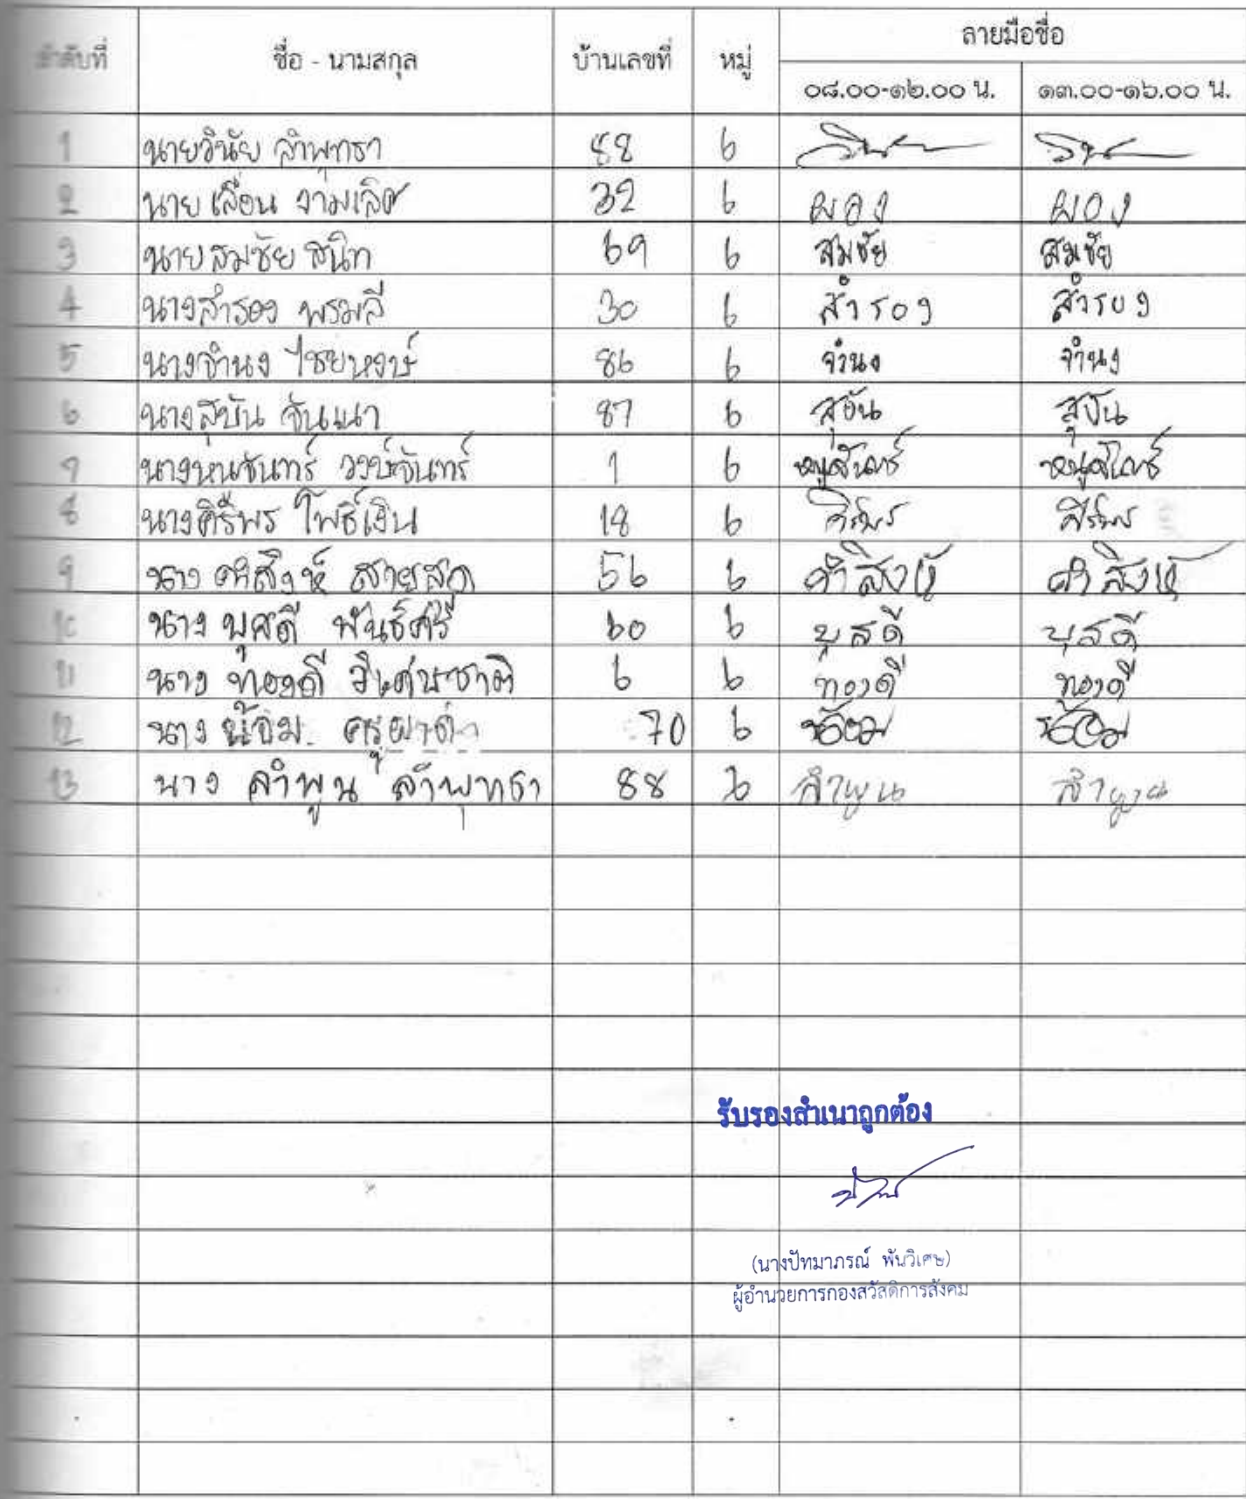 ลำดับที่ ชื่อ - นามสกุล บ้านเลขที่ หมู่ ลายมือชื่อ
๐๘.๐๐-๑๒.๐๐ น. ๑๓.๐๐-๑๖.๐๐ น.
1 นายวินัย ลำพุทรา 88 6
2 นายเลื่อน งามเลิศ 32 6 ผอง ผอง
3 นายสมชัย สนิท 69 6 สมชัย สมชัย
4 นางสำรอง พรมลี 30 6 สำรอง สำรอง
5 นางจำนง ไชยหงษ์ 86 6 จำนง จำนง
6 นางสุบัน จันแนา 87 6 สุบัน สุบัน
7 นางหนูจันทร์ วงษ์จันทร์ 1 6 หนูจันทร์ หนูจันทร์
8 นางศิริพร โพธิ์เงิน 18 6 ศิริพร ศิริพร
9 นาง คำสิงห์ สายสกุ 56 6 คำสิงห์ คำสิงห์
10 นาง บุศดี พันธ์ศรี 60 6 บุสดี บุสดี
11 นาง ทองดี 6 6 ทองดี ทองดี
12 นาง น้อม 70 6 น้อม น้อม
13 นาง ลำพูน ลำพุทรา 88 6 ลำพูน ลำพูน
รับรองสำเนาถูกต้อง
(นางปัทมาภรณ์ พันวิเศษ)
ผู้อำนวยการกองสวัสดิการสังคม